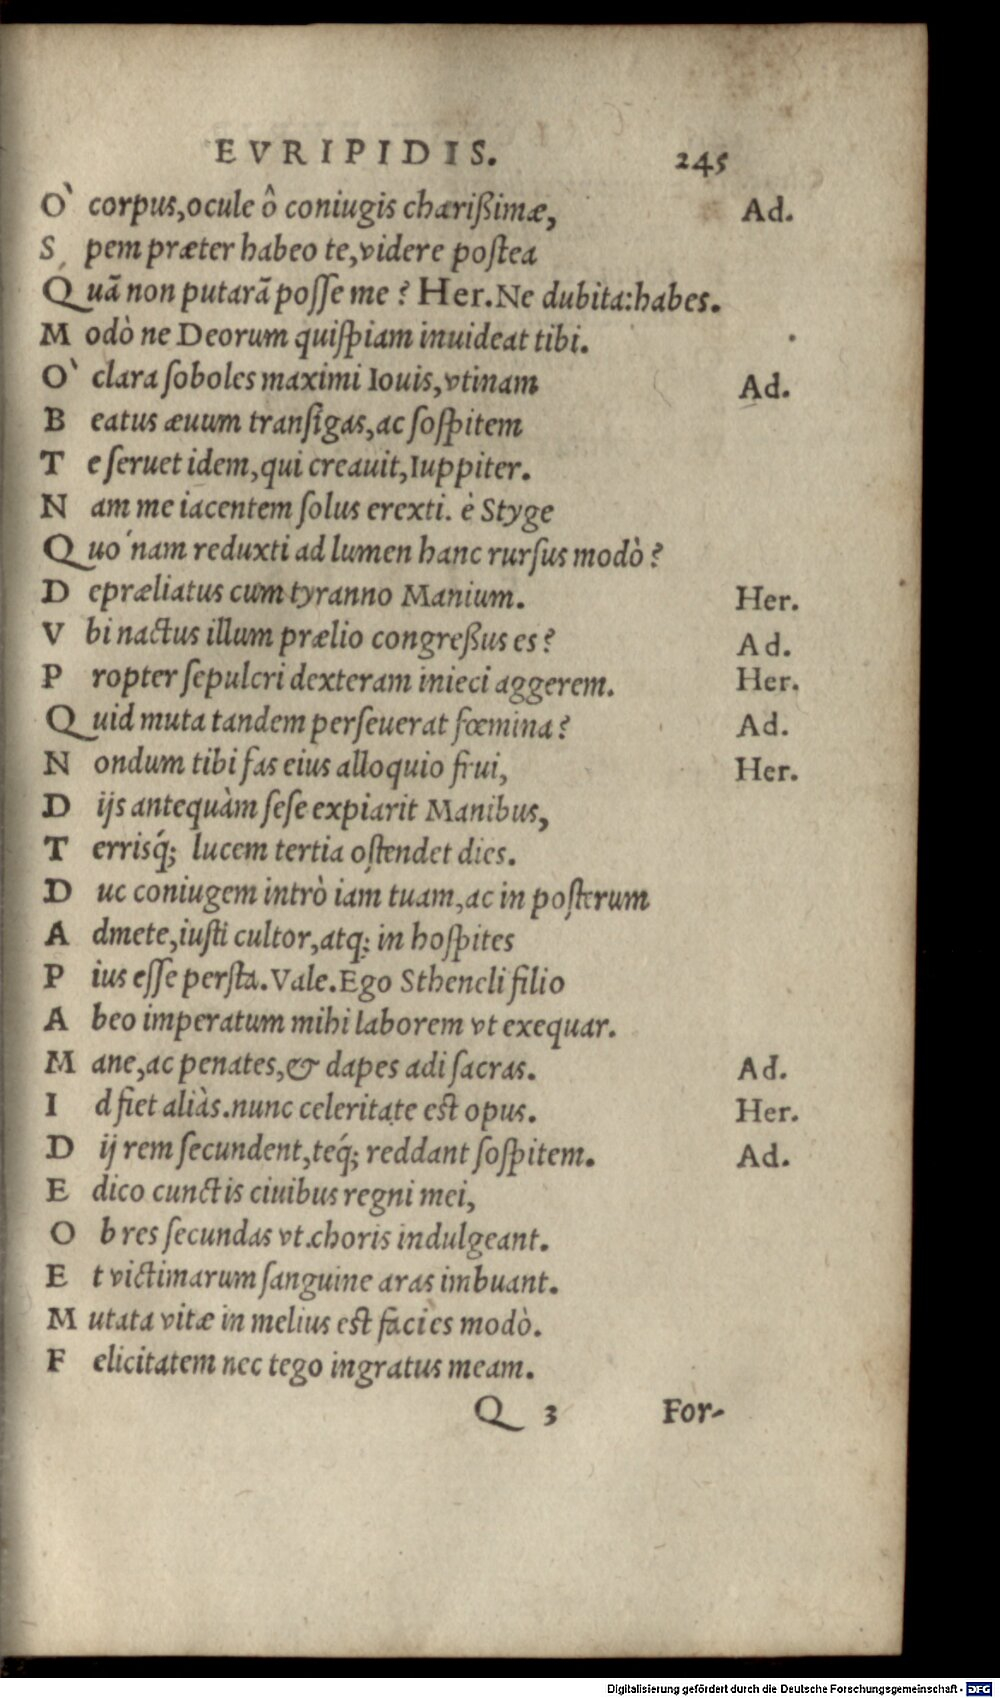 EVRIPIDIS. 245
O` corpus,ocule ô coniugis charißimæ, Ad.
S pem præter habeo te,videre postea
Q uã non putarã posse me ? Her.Ne dubita:habes.
M odò ne Deorum quispiam inuideat tibi.
O` clara soboles maximi Iouis,vtinam Ad.
B eatus æuum transigas,ac sospitem
T e seruet idem,qui creauit,Iuppiter.
N am me iacentem solus erexti. è Styge
Q uo'nam reduxti ad lumen hanc rursus modò ?
D epræliatus cum tyranno Manium. Her.
V bi nactus illum prælio congreßus es ? Ad.
P ropter sepulcri dexteram inieci aggerem. Her.
Q uid muta tandem perseuerat fœmina ? Ad.
N ondum tibi fas eius alloquio frui, Her.
D ijs antequàm sese expiarit Manibus,
T errisq́; lucem tertia ostendet dies.
D uc coniugem intrò iam tuam,ac in posterum
A dmete,iusti cultor,atq; in hospites
P ius esse persta.Vale.Ego Stheneli filio
A beo imperatum mihi laborem vt exequar.
M ane,ac penates,& dapes adi sacras. Ad.
I d fiet aliàs.nunc celeritate est opus. Her.
D ij rem secundent,teq́; reddant sospitem. Ad.
E dico cunctis ciuibus regni mei,
O b res secundas vt.choris indulgeant.
E t victimarum sanguine aras imbuant.
M utata vitæ in melius est facies modò.
F elicitatem nec tego ingratus meam.
Q 3 For-
Digitalisierung gefördert durch die Deutsche Forschungsgemeinschaft - DFG